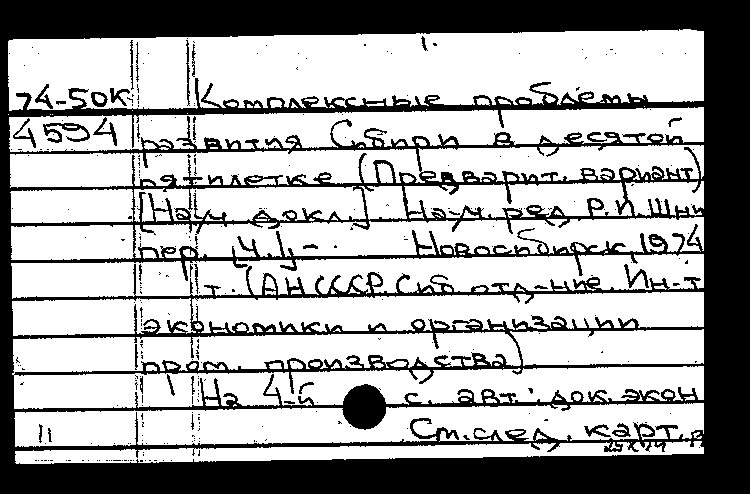 1.
74-50К Комплексные проблемы
4594 развития Сибири в десятой
пятилетке (Предварит. вариант)
[Науч. докл.] Науч. ред. Р.И. Шни
пер. [Ч.1]-. Новосибирск, 1974
т. (АН СССР. Сиб. отд-ние. Ин-т
экономики и организации
пром. производства)
На 4-й с. авт.: док. экон
11 См. след. карт.